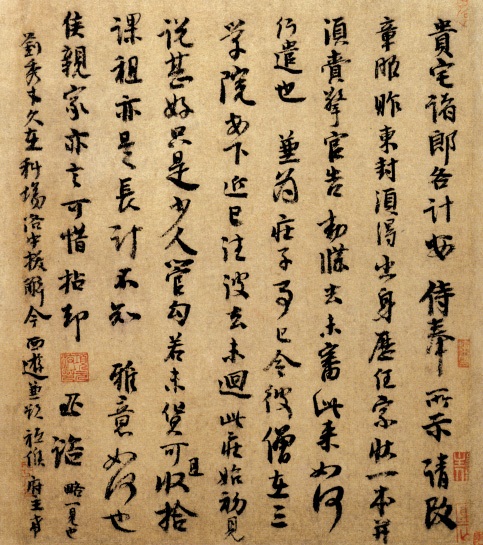 貴宅諸郎各計安侍奉所示請改
章服昨東封須得出身歷任家狀一本并
須賫擎官告勅牒去未審此来如何
行遣也並為莊子事已令彼僧在三
学院安下近已往彼去未迴此莊始初見
说甚好只是少人管勾若未貨可且收拾
課祖亦是長計不知雅意如何也
侯親家亦言可惜拈却亞諮略一見也
劉秀才久在科場洛中拔解今西遊兼欲祗候府主